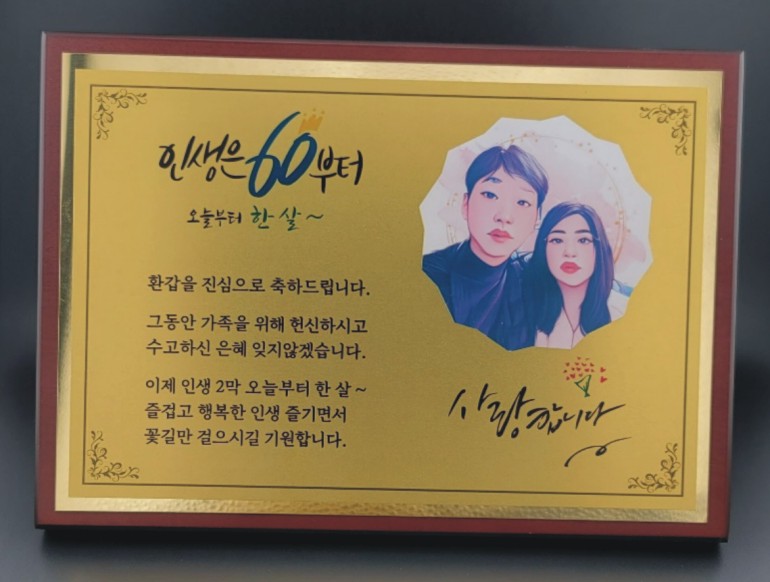 인생은 60부터
오늘부터 한 살~
환갑을 진심으로 축하드립니다.
그동안 가족을 위해 헌신하시고
수고하신 은혜 잊지않겠습니다.
이제 인생 2막 오늘부터 한 살~
즐겁고 행복한 인생 즐기면서
꽃길만 걸으시길 기원합니다.
사랑합니다